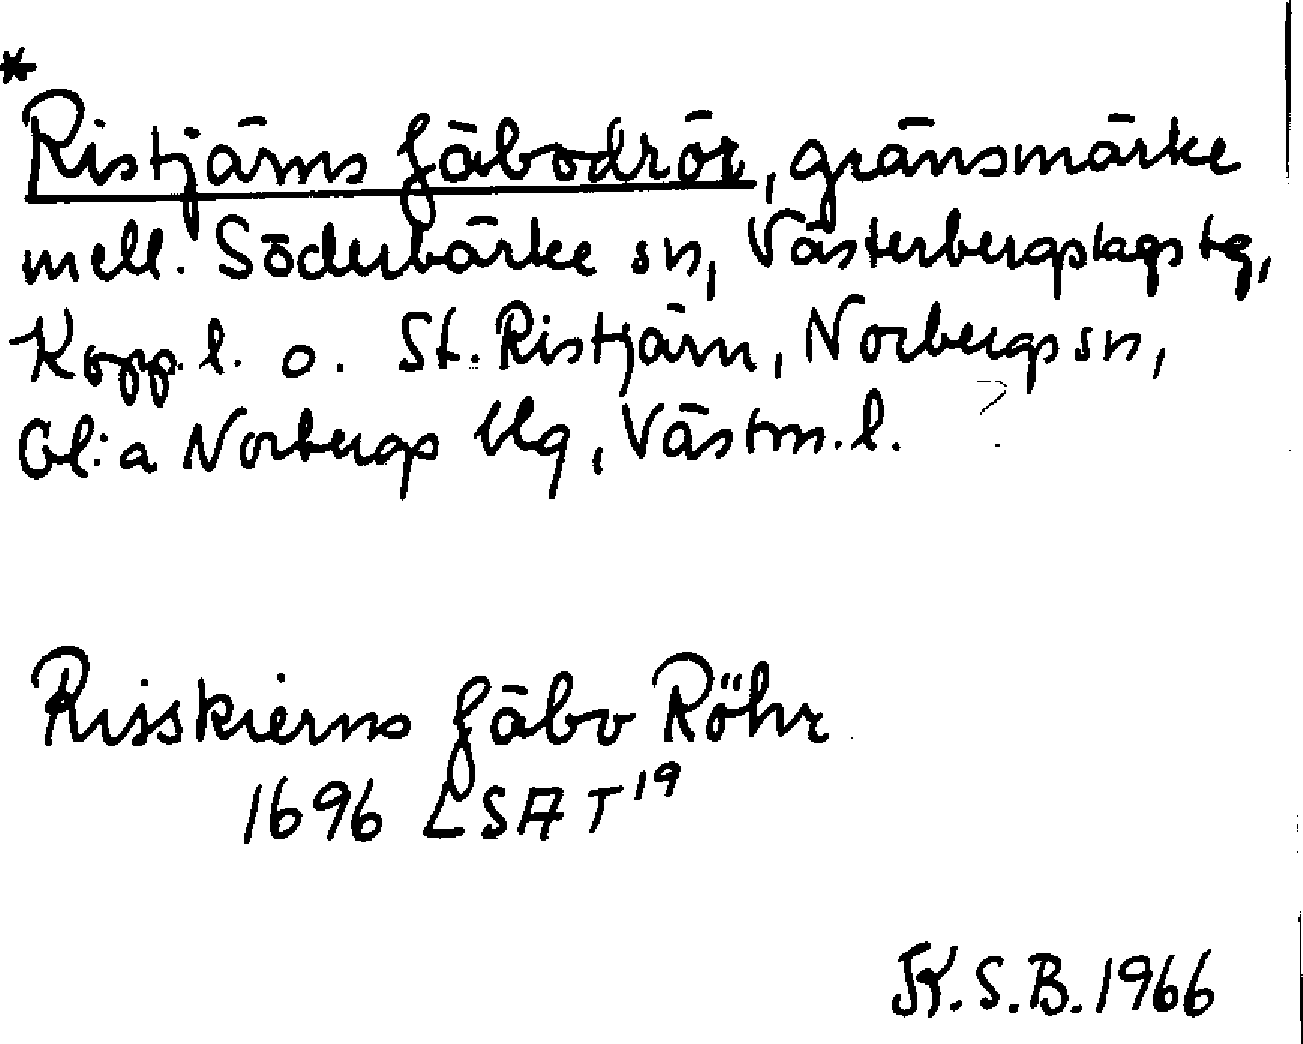 *
Ristjärns fäbodrör, gränsmärke
mell. Söderbärke sn, Västerbergslags tg,
Kopp. l. o. St. Ristjärn, Norbergs sn,
Gl:a Norbergs blg, Västm. l.
Risskierns fäbo Röhr
1696 LSA T19
K.S.B. 1966